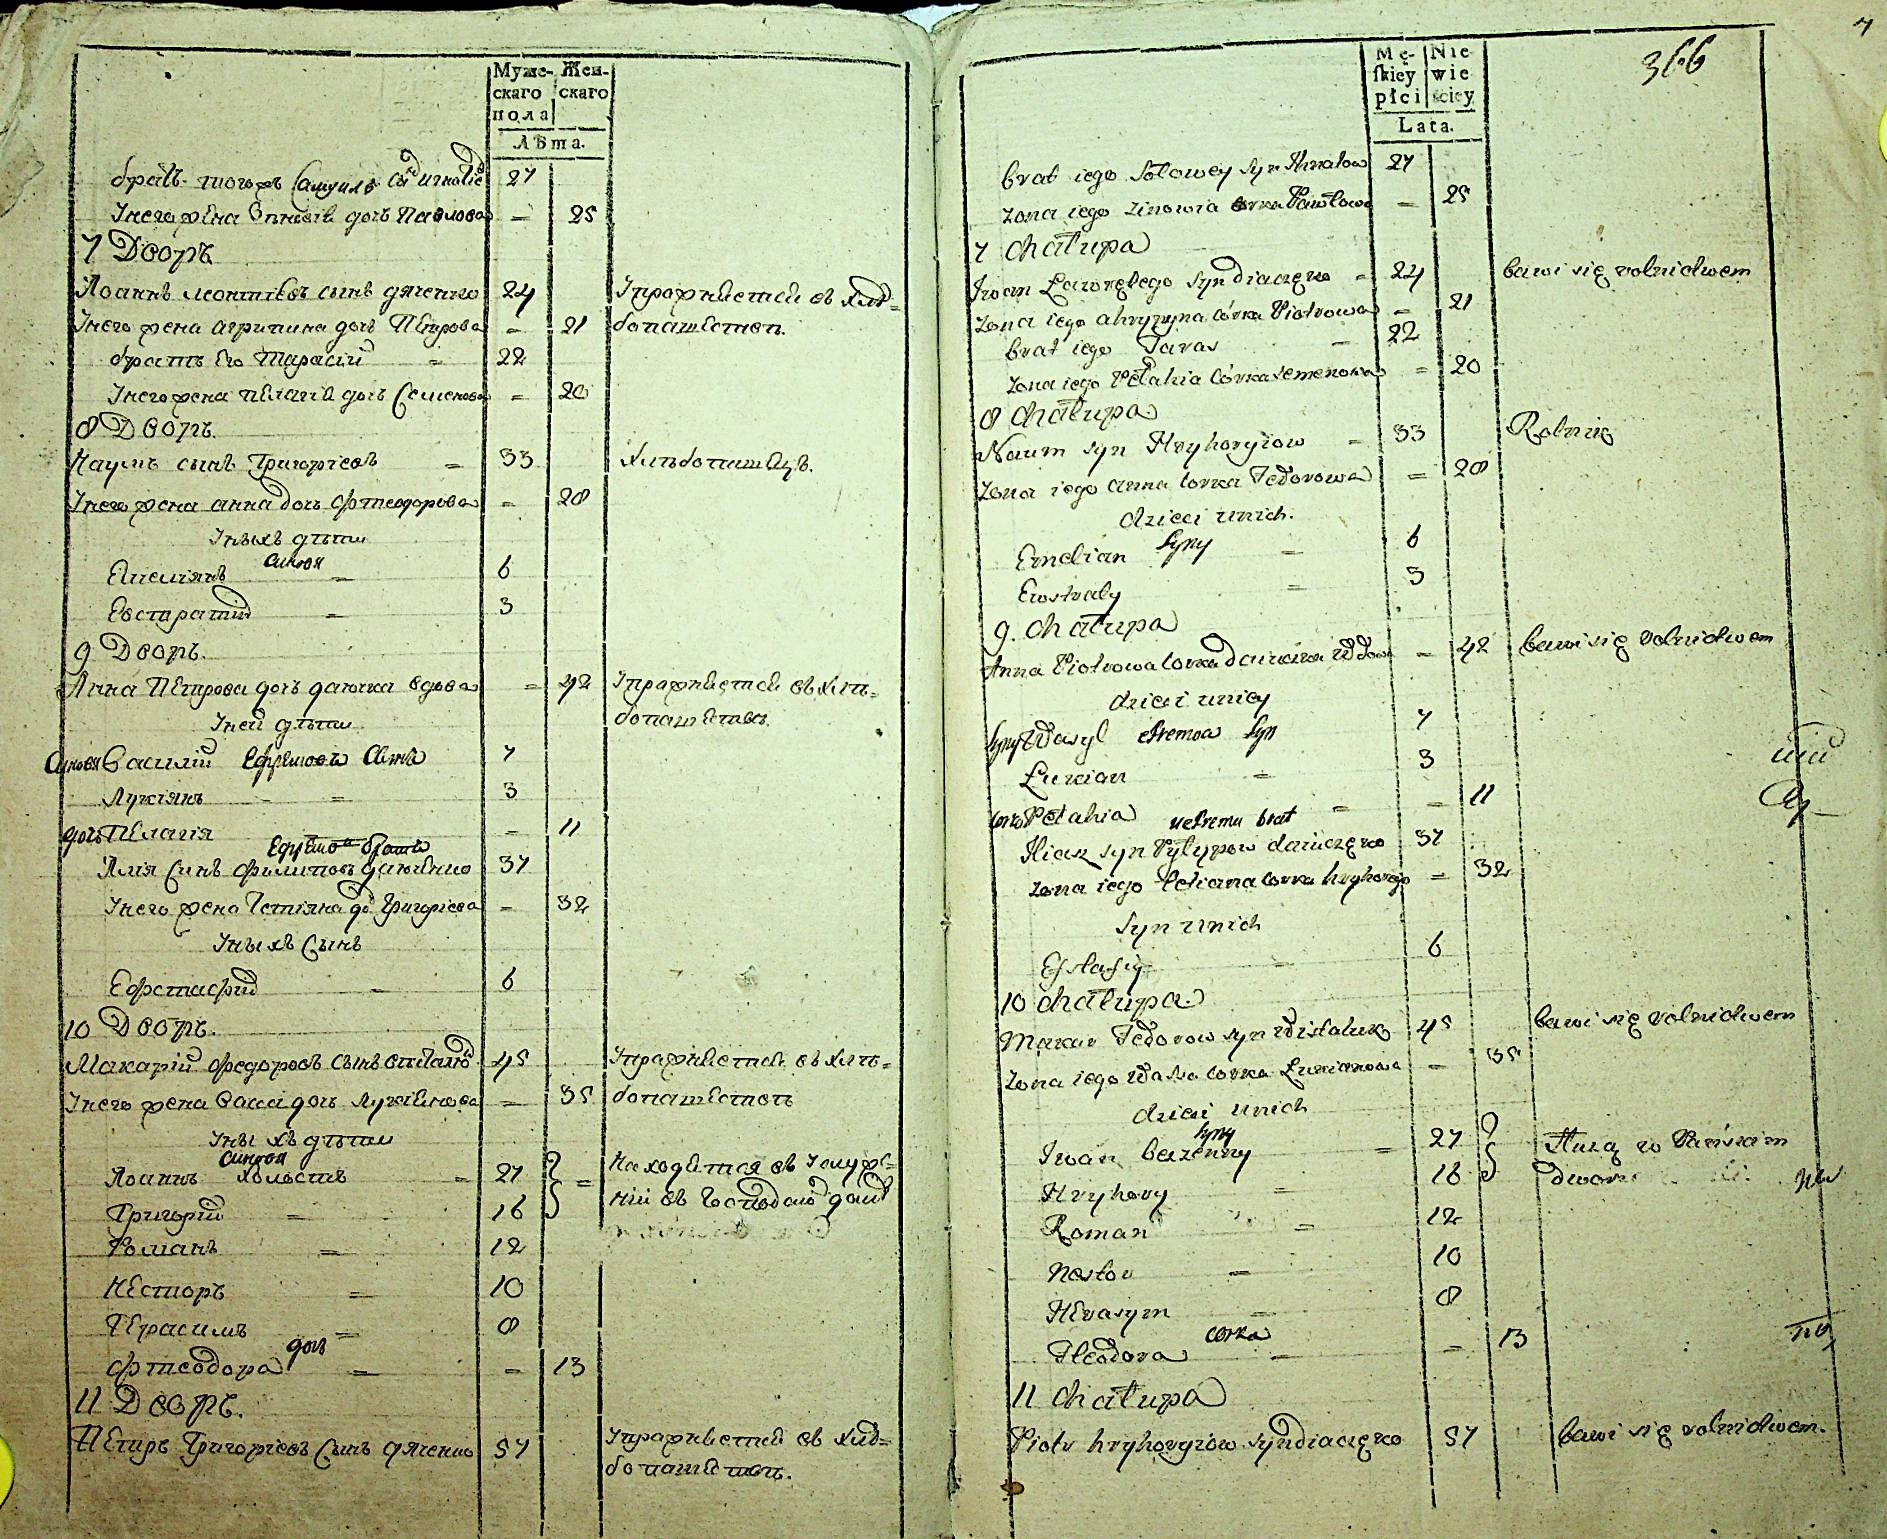 Муже-
скаго
пола
Жен-
скаго
Лѣта.
братъ того 27
У него жена дочь Павлова – 25
7 Дворъ
Иоаннъ Леонтіевъ сынъ дяченко 24 Упражняется въ хлѣ=
У него жена агрипина дочь Петрова – 21 бопашествѣ.
братъ его Тарасій = 22
У него жена Пелагія дочь Семенова = 20
8 Дворъ.
Наумъ сынъ Григоріевъ = 33 Хлѣбопашецъ.
У него жена анна дочь Фтеодорова = 28
У ныхъ дѣти
синовя
Емеліянъ = 6
Евстратій = 3
9 Дворъ.
Анна Петрова дочь вдова = 42 Упражняется въ хлѣ=
У ней дѣти бопашествѣ.
синовя Василій Ефремовъ синъ 7
Лукіянъ = 3
дочъ Пелагія – 11
Ефрема братъ
Илія синъ Филиповъ 37
У него жена Григоріева – 32
У ныхъ сынъ
Ефстафій = 6
10 Дворъ.
Макарій Федоровъ сынъ 45 Упражняется въ хлѣ=
У него жена Васса дочъ Лукіянова – 35 бопашествѣ
У ныхъ дѣти
синовя
Иоаннъ холостъ = 27 Находится въ
Григорій = 16 въ
Романъ = 12
Несторъ = 10
Герасимъ = 8
дочъ
Фтеодора = – 13
11 Дворъ.
Петръ Григоріевъ сынъ дяченко 57 Упражняется въ хлѣ=
бопашествѣ.
7
366
Mę-
skiey
płci
Nie
wie
sciey
Lata.
brat iego syn Hnatow 27
zona iego Zinowia corka Pawłowa – 25
7 chałupa
Iwan syn Diaczęko = 24 bawi się rolnictwem
zona iego ahrypyna córka Piotrowa – 21
brat iego Taras – 22
zona iego Pełahia córka Semenowa = 20
8 chałupa
Naum syn Hryhoryiow = 33 Rolnik
zona iego anna corka Fedorowa = 28
dzieci u nich.
syny
Emelian = 6
Ewstraty = 3
9. chałupa
Anna Piotrowa corka wdowa – 42 bawi się rolnictwem
dzieci u niey
syny Wasyl efremow syn 7
Łukian = 3
corka Pełahia = – 11
uefrema brat
Iliasz syn Pylypow 37
zona iego corka hryhorego – 32
syn u nich
Efstafiy = 6
10 chałupa
Makar Fedorow syn 45 bawi się rolnictwem
zona iego Wassa corka Łukianowa – 35
dzieci u nich
syny
Iwan bezzenny = 27 Służą w Pańskim
Hryhory = 16 dworze
Roman = 12
Nestor = 10
Herasym = 8
corka
Fteodora = – 13
11 chałupa
Piotr hryhoryiow syn diaczęko 57 bawi się rolnictwem.